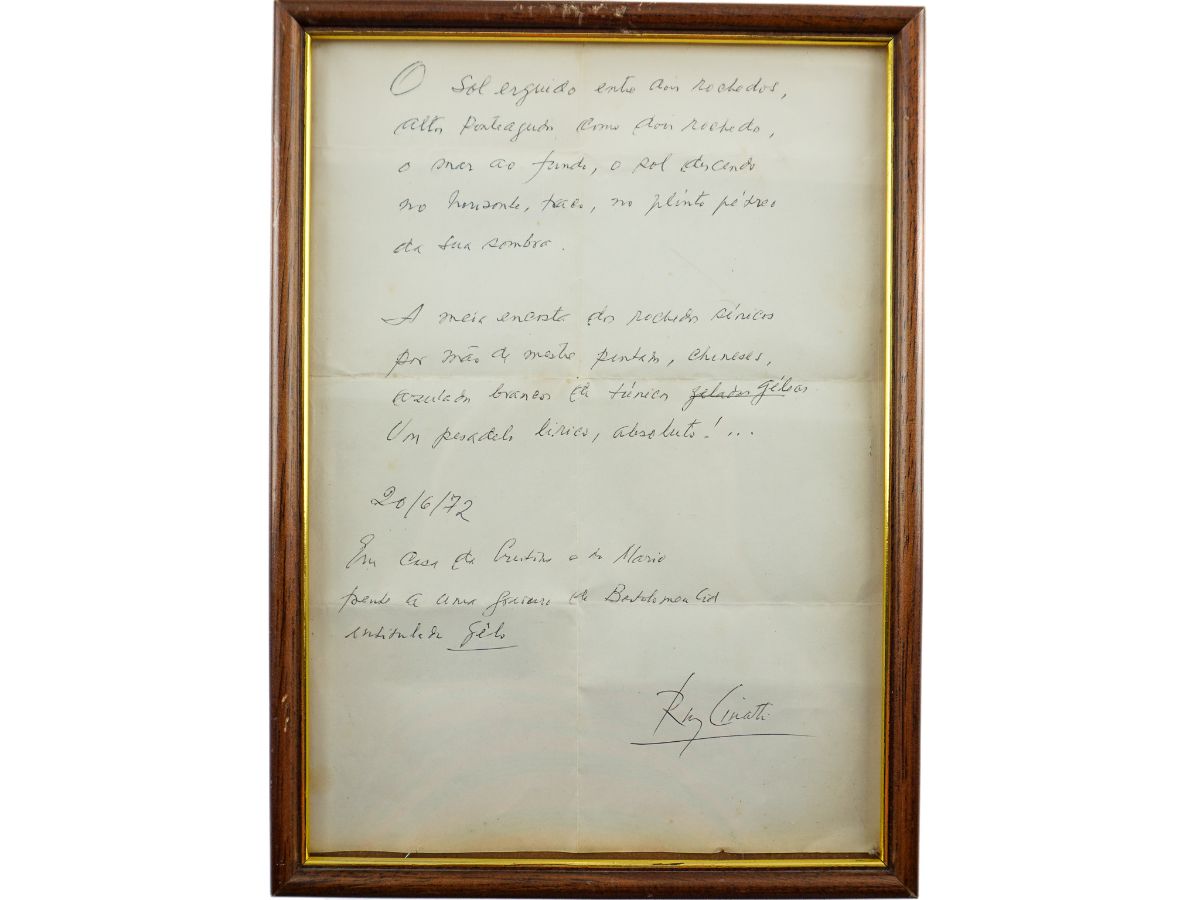 O sol erguido entre dois rochedos,
altos ponteagudos como dois rochedo,
o mar ao fundo, o sol descendo
no horizonte, traço, no plinto pétreo
da sua sombra.
A meia encosta dos rochedos sónicos
por mão de mestre pintam, chineses,
azulados brancos de túnicas gelados gélicas
Um pesadelo lírico, absoluto! ...
20/6/72
Em casa da Cristina e do Mario
frente a uma gravura de Bartolomeu Cid
intitulada Gêlo
Ruy Cinatti